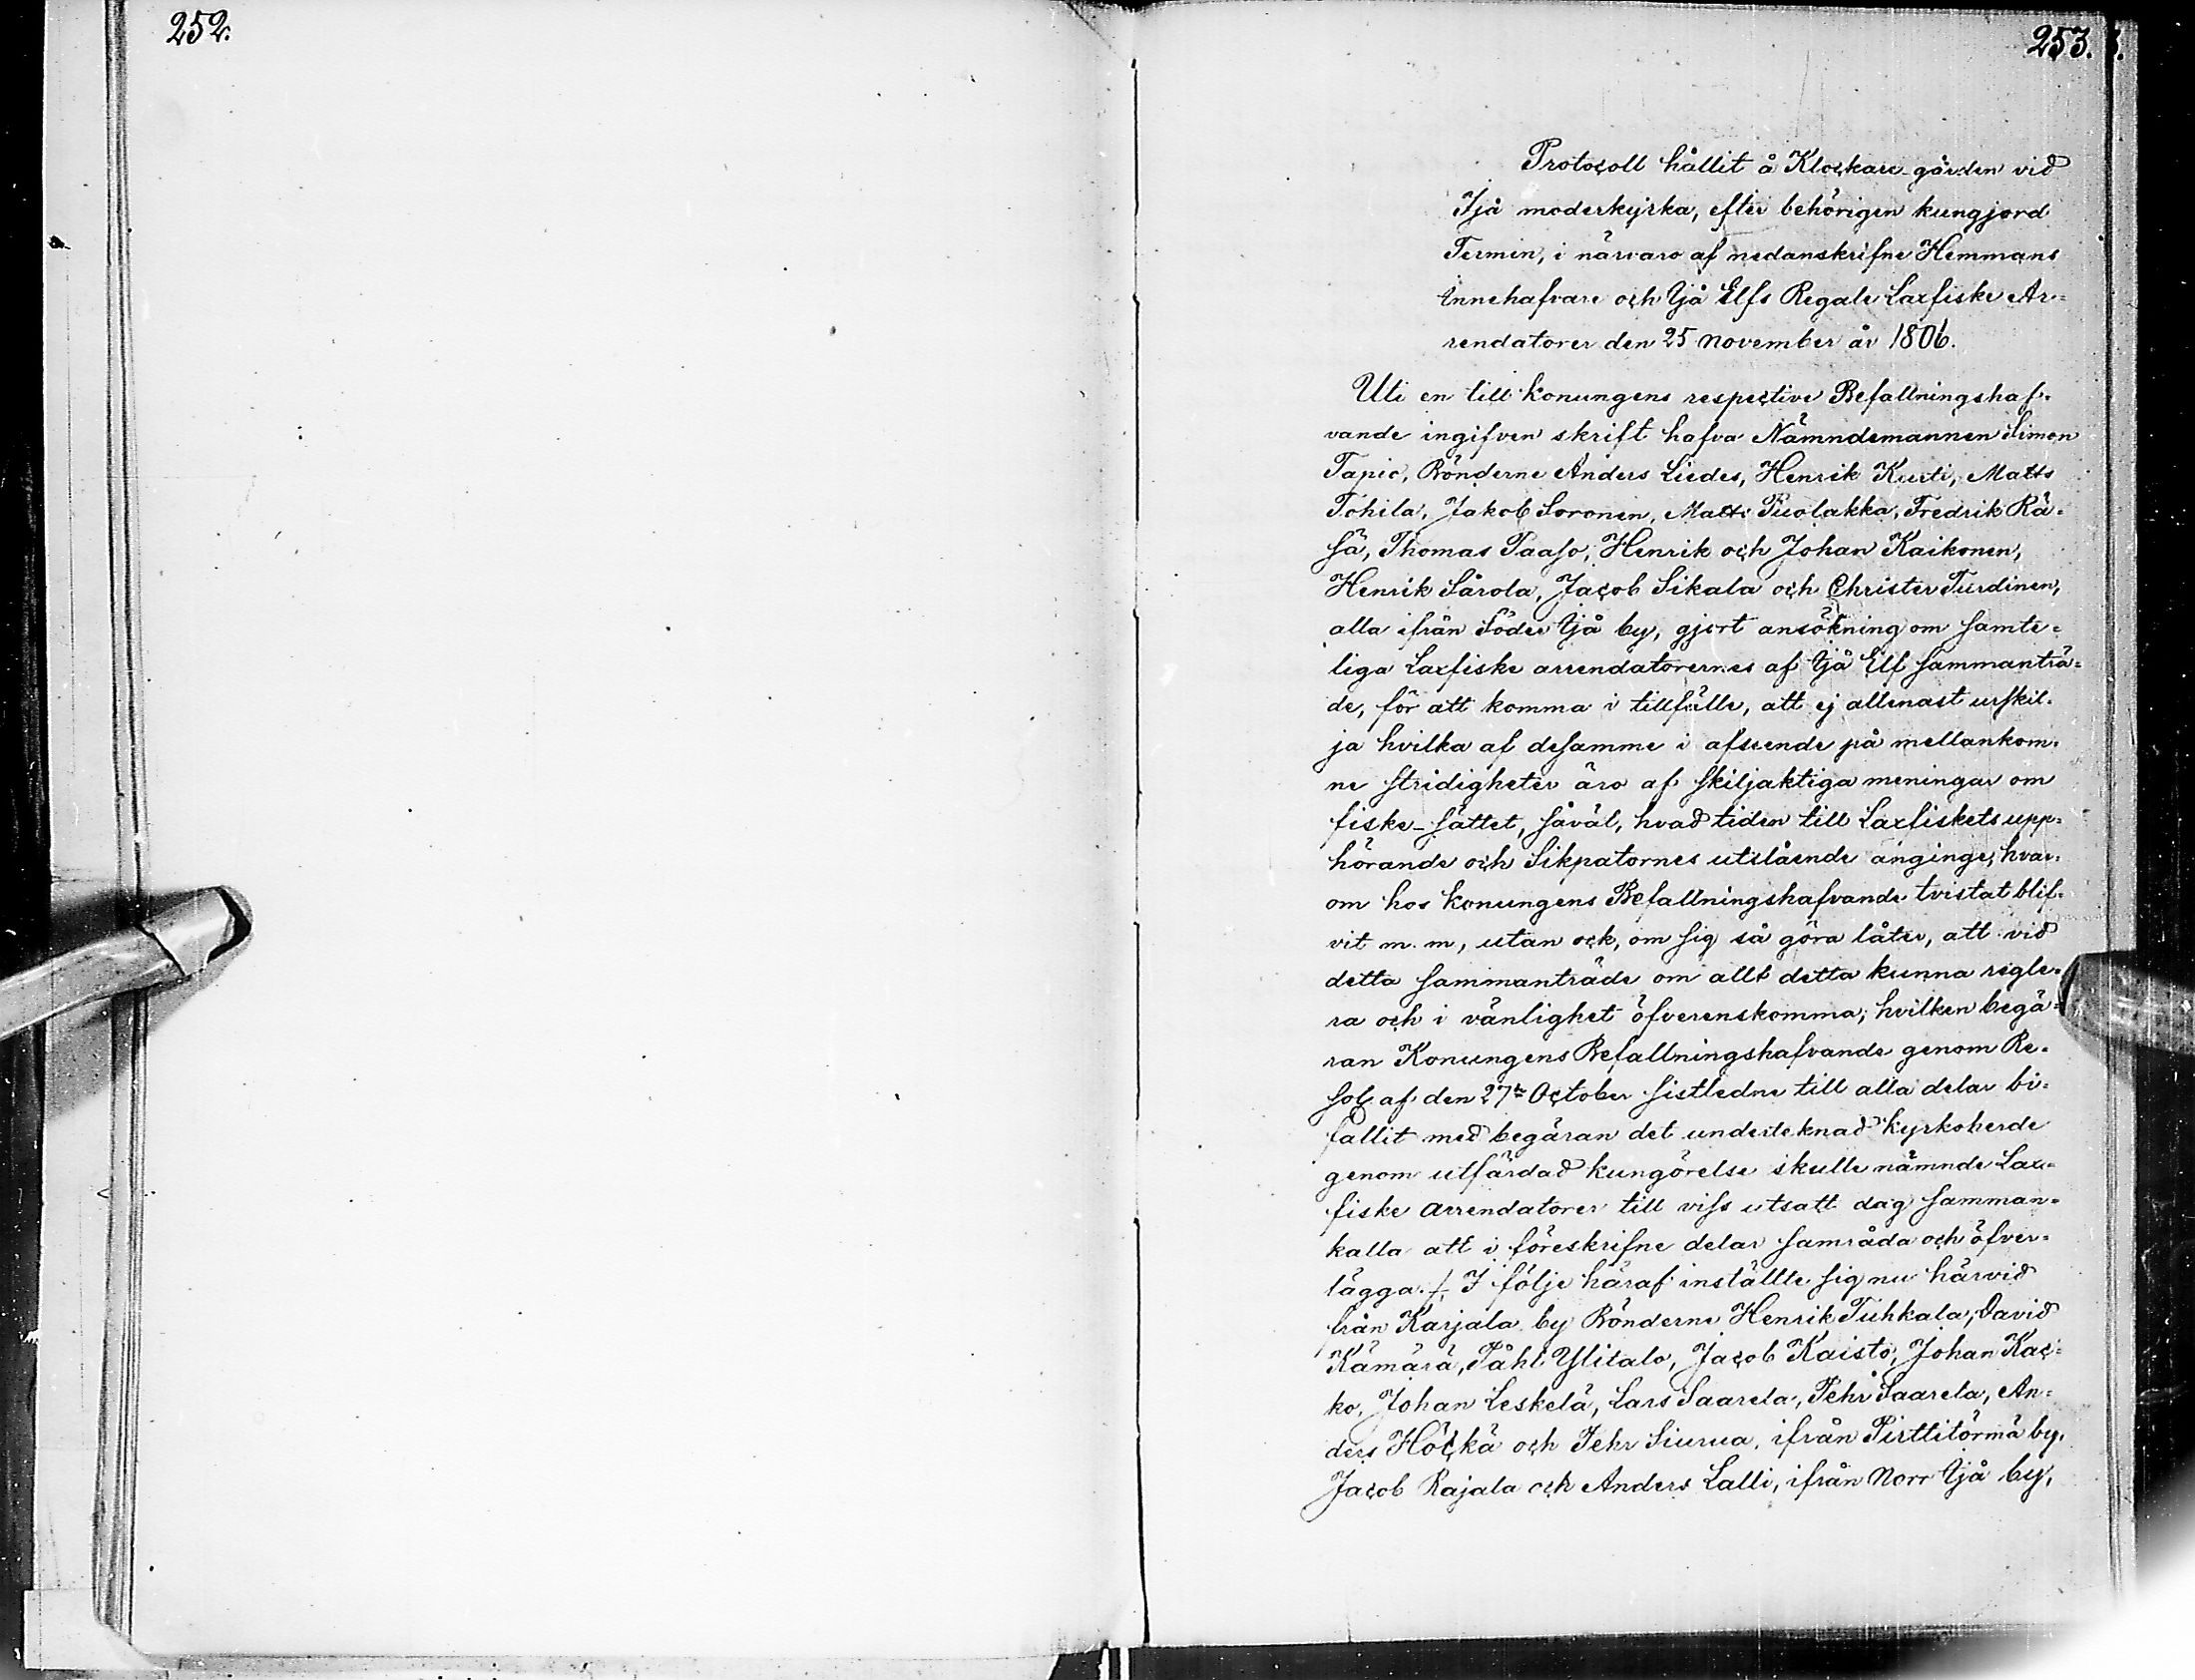 252.
253.
Protocoll hållit å Klockare-gården vid
Ijå moderkyrka, efter behörigen kungjord
Termin, i närvaro af nedanskrifne Hemmans
innehafvare och Ijå Elfs Regale Laxfiske Ar-
rendatorer den 25 November år 1806.
Uti en till konungens respective Befallningshaf-
vande ingifven skrift hafva Nämndemannen Simon
Tapio, Bönderne Anders Liedes, Henrik Kurti, Matts
Tohila, Jakob Soronen, Matts Puolakka, Fredrik Rä-
sä, Thomas Paaso, Henrik och Johan Kaikonen,
Henrik Sårola, Jacob Sikala och Christer Turdinen,
alla ifrån Söder Ijå by, gjort ansökning om samte-
liga Laxfiske arrendatorernes af Ijå Elf sammanträ-
de, för att komma i tillfälle, att ej allenast urskil-
ja hvilka af desamme i afseende på mellankom-
ne stridigheter äro af skiljaktiga meningar om
fiske-sättet, såväl, hvad tiden till Laxfiskets upp-
hörande och Sikpatornes utslående anginge, hvar-
om hos konungens Befallningshafvande tvistat blif-
vit m. m, utan ock, om sig så göra låter, att vid
detta sammanträde om allt detta kunna regle-
ra och i vänlighet öfverenskomma; hvilken begä-
ran Konungens Befallningshafvande genom Re-
sol. af den 27de October sistledne till alla delar bi-
fallit med begäran det undertecknad kyrkoherde
genom utfärdad kungörelse skulle nämnde Lax-
fiske arrendatorer till viss utsatt dag samman-
kalla att i föreskrifne delar samråda och öfver-
lägga. /. I följe häraf inställte sig nu härvid
från Karjala by Bönderne Henrik Tuhkala, David
Kämärä, Påhl Ylitalo, Jacob Kaisto, Johan Kac-
ko, Johan Leskelä, Lars Saarela, Pehr Saarela, An-
ders Höckä och Pehr Siurua, ifrån Pirttitörmä by,
Jacob Rajala och Anders Lalli, ifrån Norr Ijå by,